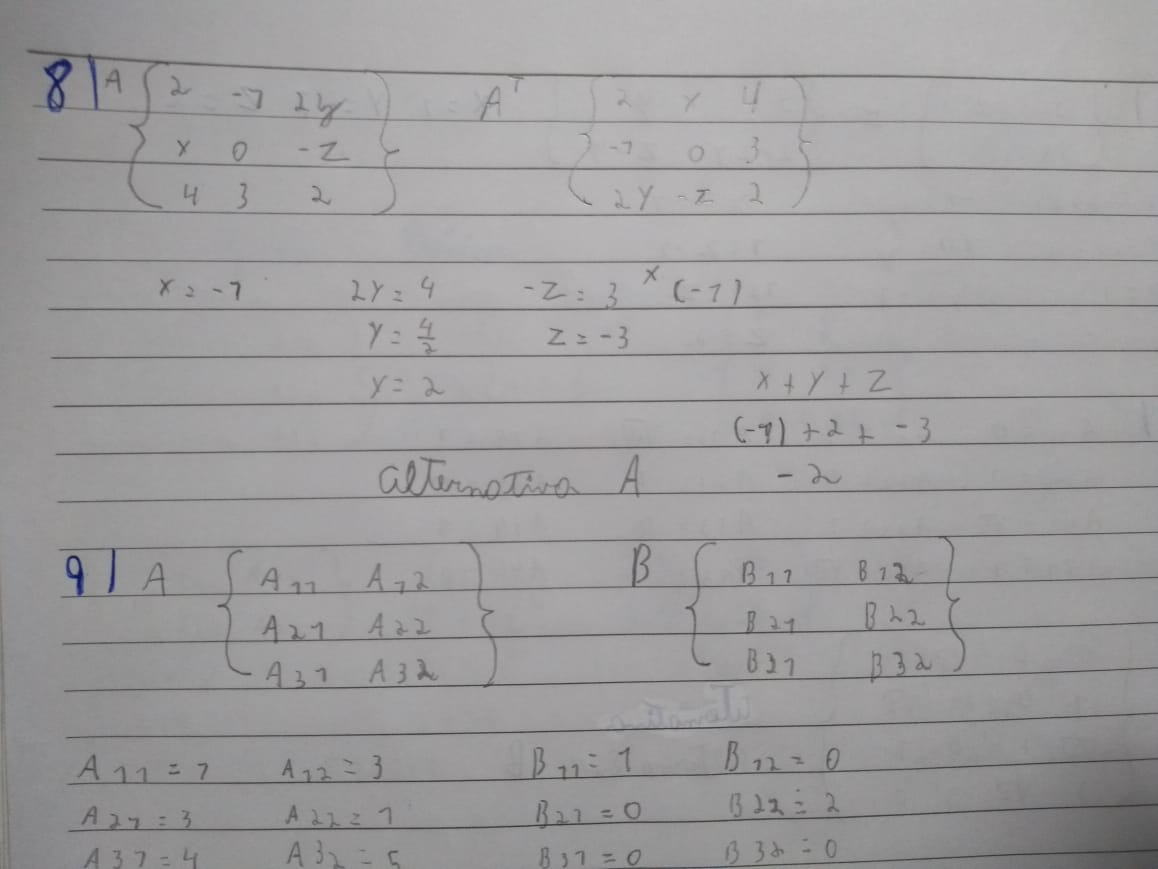 8) A 2 -1 2y A^T 2 x 4
x 0 -z -1 0 3
4 3 2 2y -z 2
x = -1 2y = 4 -z = 3 x (-1)
y = 4/2 z = -3
y = 2 x + y + z
(-1) + 2 + -3
alternativa A -2
9) A A11 A12 B B11 B12
A21 A22 B21 B22
A31 A32 B31 B32
A11 = 1 A12 = 3 B11 = 1 B12 = 0
A21 = 3 A22 = 1 B21 = 0 B22 = 2
A31 = 4 A32 = 5 B31 = 0 B32 = 0